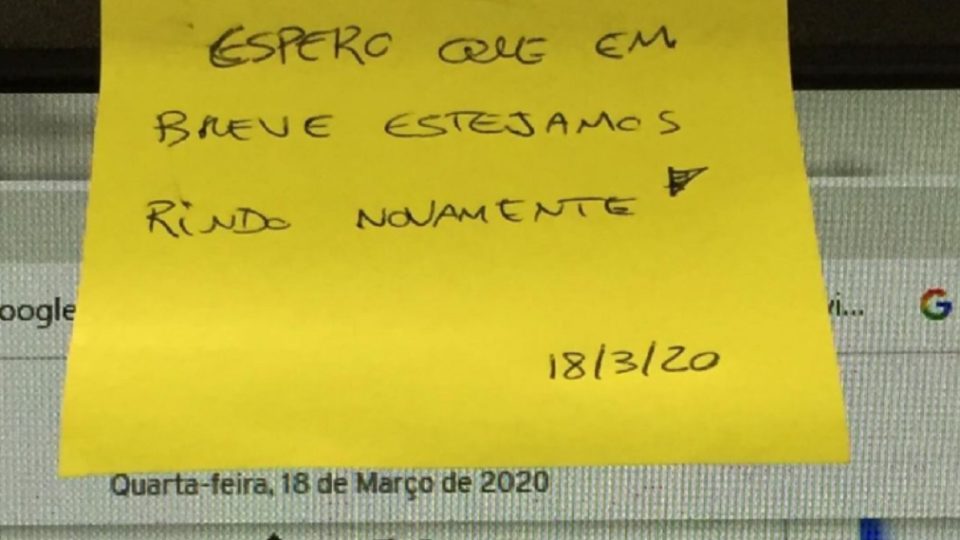 ESPERO QUE EM
BREVE ESTEJAMOS
RINDO NOVAMENTE
oogle
18/3/20
Quarta-feira, 18 de Março de 2020